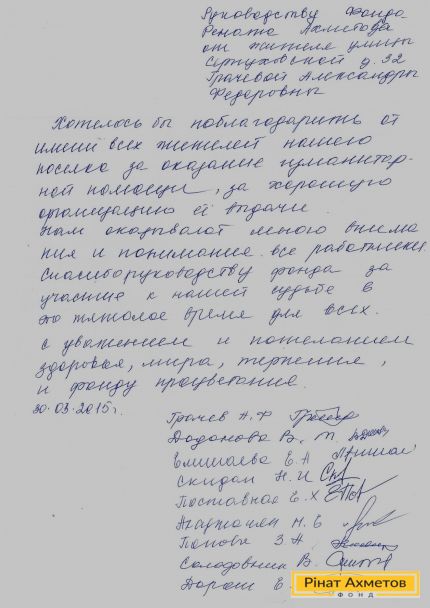 Руководству Фонда
Рената Ахметова
от жителя улицы
Серпуховской д. 32
Грачевой Александры
Федоровны
Хотелось бы поблагодарить от
имени всех жителей нашего
поселка за оказание гуманитар-
ной помощи, за хорошую
организацию её выдачи.
Нам оказывают много внима
ния и понимания все работники
Спасибо руководству фонда за
участие к нашей судьбе в
это тяжолое время для всех.
с уважением и пожеланием
здоровья, мира, терпения,
и фонду процветания.
30.03.2015г.
Грачев А.Ф
Додонова В. М.
Елишаева Е А
Скидан Н. И
Поставная Е. Х
Акаджанян М. Б
Попова З А
Солодовник В.
Дорош Е.
Рінат Ахметов
ФОНД